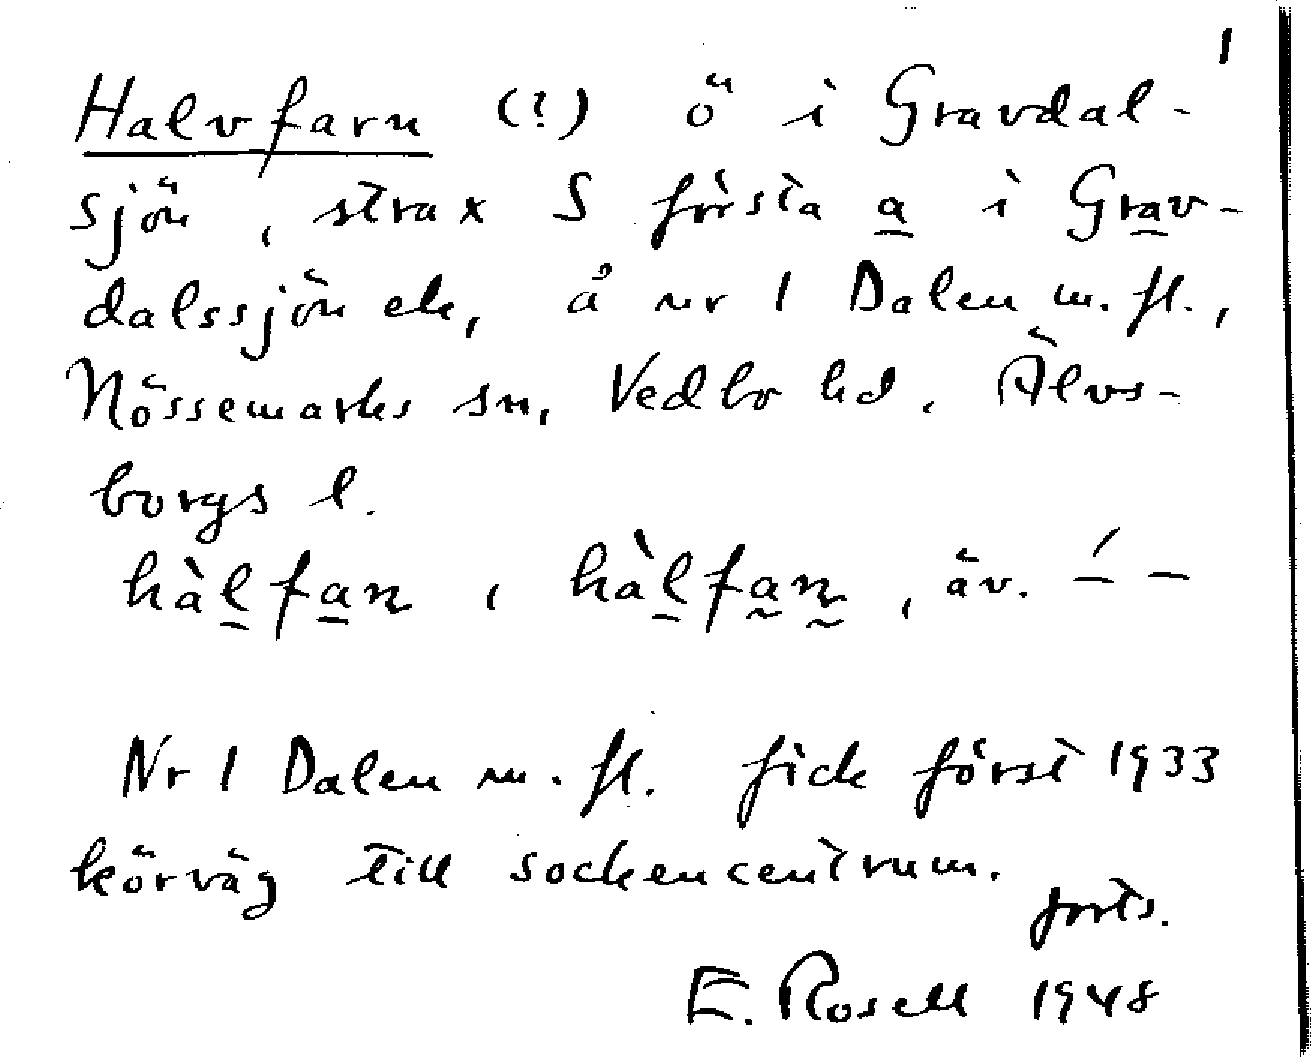 1
Halvfarn (?) ö i Gravdal-
sjön, strax S första a i Grav-
dalssjön ek, å nr 1 Dalen m. fl.,
Nössemarks sn, Vedbo hd. Älvs-
borgs l.
hàlfan, hàlfan, äv. ́– –
Nr 1 Dalen m. fl. fick först 1933
körväg till sockencentrum.
forts.
E. Rosell 1948